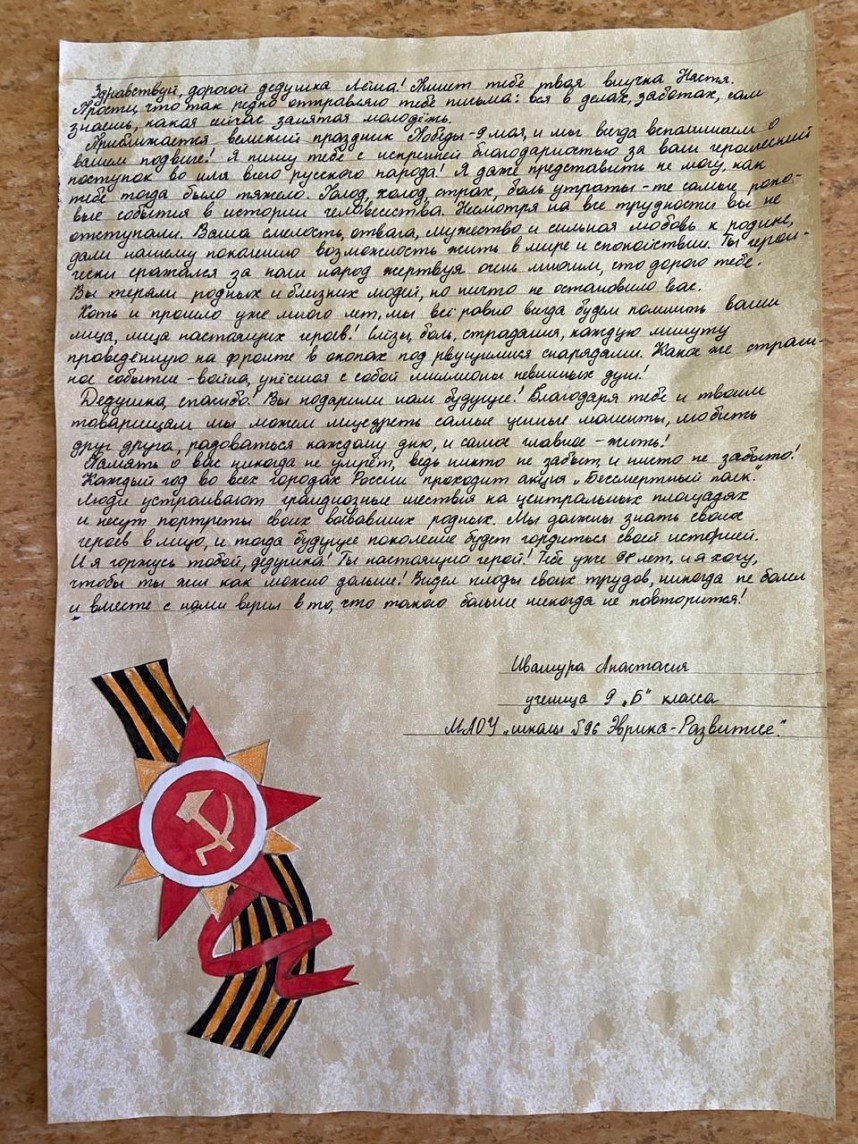 Здравствуй, дорогой дедушка Лёша! Пишет тебе твоя внучка Настя.
Прости, что так редко отправляю тебе письма: вся в делах, заботах, сам
знаешь, какая сейчас занятая молодёжь.
Приближается великий праздник Победы - 9 мая, и мы всегда вспоминаем о
вашем подвиге! Я пишу тебе с искренней благодарностью за ваш героический
поступок во имя всего русского народа! Я даже представить не могу, как
тебе тогда было тяжело. Голод, холод, страх, боль утраты - те самые роко-
вые события в истории человечества. Несмотря на все трудности вы не
отступали. Ваша смелость, отвага, мужество и сильная любовь к родине,
дали нашему поколению возможность жить в мире и спокойствии. Ты герои-
чески сражался за наш народ жертвуя очень многим, что дорого тебе.
Вы теряли родных и близких людей, но ничто не остановило вас.
Хоть и прошло уже много лет, мы всё равно всегда будем помнить ваши
лица, лица настоящих героев! Слёзы, боль, страдания, каждую минуту
проведённую на фронте в окопах под рвущимися снарядами. Какое же страш-
ное событие - война, унёсшая с собой миллионы невинных душ!
Дедушка, спасибо! Вы подарили нам будущее! Благодаря тебе и твоим
товарищам мы можем лицезреть самые ценные моменты, любить
друг друга, радоваться каждому дню, и самое главное - жить!
Память о вас никогда не умрёт, ведь никто не забыт, и ничто не забыто!
Каждый год во всех городах России проходит акция „Бессмертный полк."
Люди устраивают грандиозные шествия на центральных площадях
и несут портреты своих воевавших родных. Мы должны знать своих
героев в лицо, и тогда будущее поколение будет гордиться своей историей.
И я горжусь тобой, дедушка! Ты настоящий герой! Тебе уже 98 лет, и я хочу,
чтобы ты жил как можно дольше! Видел плоды своих трудов, никогда не болел
и вместе с нами верил в то, что такого больше никогда не повторится!
Ивашура Анастасия
ученица 9 „Б" класса
МАОУ „школы №96 Эврика-Развитие."